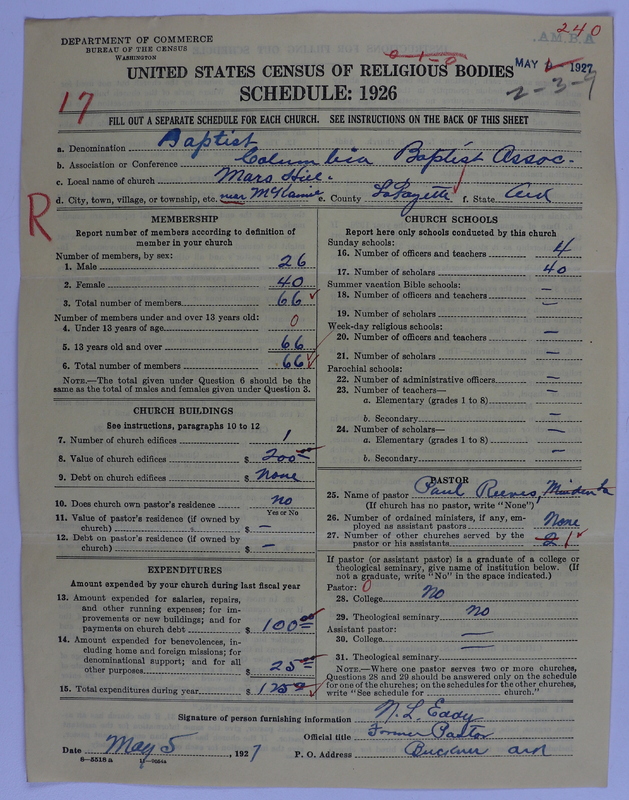 DEPARTMENT OF COMMERCE
BUREAU OF THE CENSUS
WASHINGTON
240
0-1-0
MAY 1927
2-3-9
UNITED STATES CENSUS OF RELIGIOUS BODIES
SCHEDULE: 1926
17
FILL OUT A SEPARATE SCHEDULE FOR EACH CHURCH. SEE INSTRUCTIONS ON THE BACK OF THIS SHEET
a. Denomination Baptist
b. Association or Conference Columbia Baptist Assoc.
c. Local name of church Mars Hill.
d. City, town, village, or township, etc. near McKamie e. County LaFayette f. State Ark
R
MEMBERSHIP
Report number of members according to definition of
member in your church
Number of members, by sex:
1. Male 26
2. Female 40
3. Total number of members 66
Number of members under and over 13 years old:
4. Under 13 years of age 0
5. 13 years old and over 66
6. Total number of members 66
NOTE.—The total given under Question 6 should be
same as the total of males and females given under Question 3.
CHURCH BUILDINGS
See instructions, paragraphs 10 to 12
7. Number of church edifices 1
8. Value of church edifices $ 200.00
9. Debt on church edifices $ None
10. Does church own pastor's residence no
Yes or No
11. Value of pastor's residence (if owned by
church) $ —
12. Debt on pastor's residence (if owned by
church) $ —
EXPENDITURES
Amount expended by your church during last fiscal year
13. Amount expended for salaries, repairs,
and other running expenses; for im-
provements or new buildings; and for
payments on church debt $ 100.00
14. Amount expended for benevolences, in-
cluding home and foreign missions; for
denominational support; and for all
other purposes $ 25.00
15. Total expenditures during year $ 125
CHURCH SCHOOLS
Report here only schools conducted by this church
Sunday schools:
16. Number of officers and teachers 4
17. Number of scholars 40
Summer vacation Bible schools:
18. Number of officers and teachers —
19. Number of scholars —
Week-day religious schools:
20. Number of officers and teachers —
21. Number of scholars —
Parochial schools:
22. Number of administrative officers —
23. Number of teachers—
a. Elementary (grades 1 to 8) —
b. Secondary —
24. Number of scholars—
a. Elementary (grades 1 to 8) —
b. Secondary —
PASTOR
25. Name of pastor Paul Reeves, Minden La
(If church has no pastor, write "None")
26. Number of ordained ministers, if any, em-
ployed as assistant pastors None
27. Number of other churches served by the
pastor or his assistants 2 1
If pastor (or assistant pastor) is a graduate of a college or
theological seminary, give name of institution below. (If
not a graduate, write "No" in the space indicated.)
Pastor: 0
28. College no
29. Theological seminary no
Assistant pastor:
30. College —
31. Theological seminary —
NOTE.—Where one pastor serves two or more churches,
Questions 28 and 29 should be answered only on the schedule
for one of the churches; on the schedules for the other churches,
write "See schedule for church."
Signature of person furnishing information N. L. Eady
Official title Former Pastor
Date May 5, 1927
P. O. Address Buckner Ark
8-5518 a